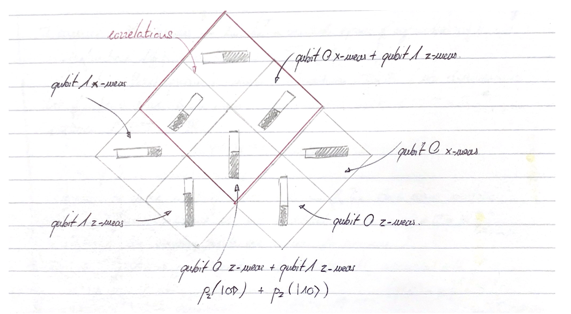 correlations
qubit 0 x-meas + qubit 1 z-meas
qubit 1 x-meas
qubit 0 x-meas
qubit 1 z-meas
qubit 0 z-meas.
qubit 0 z-meas + qubit 1 z-meas